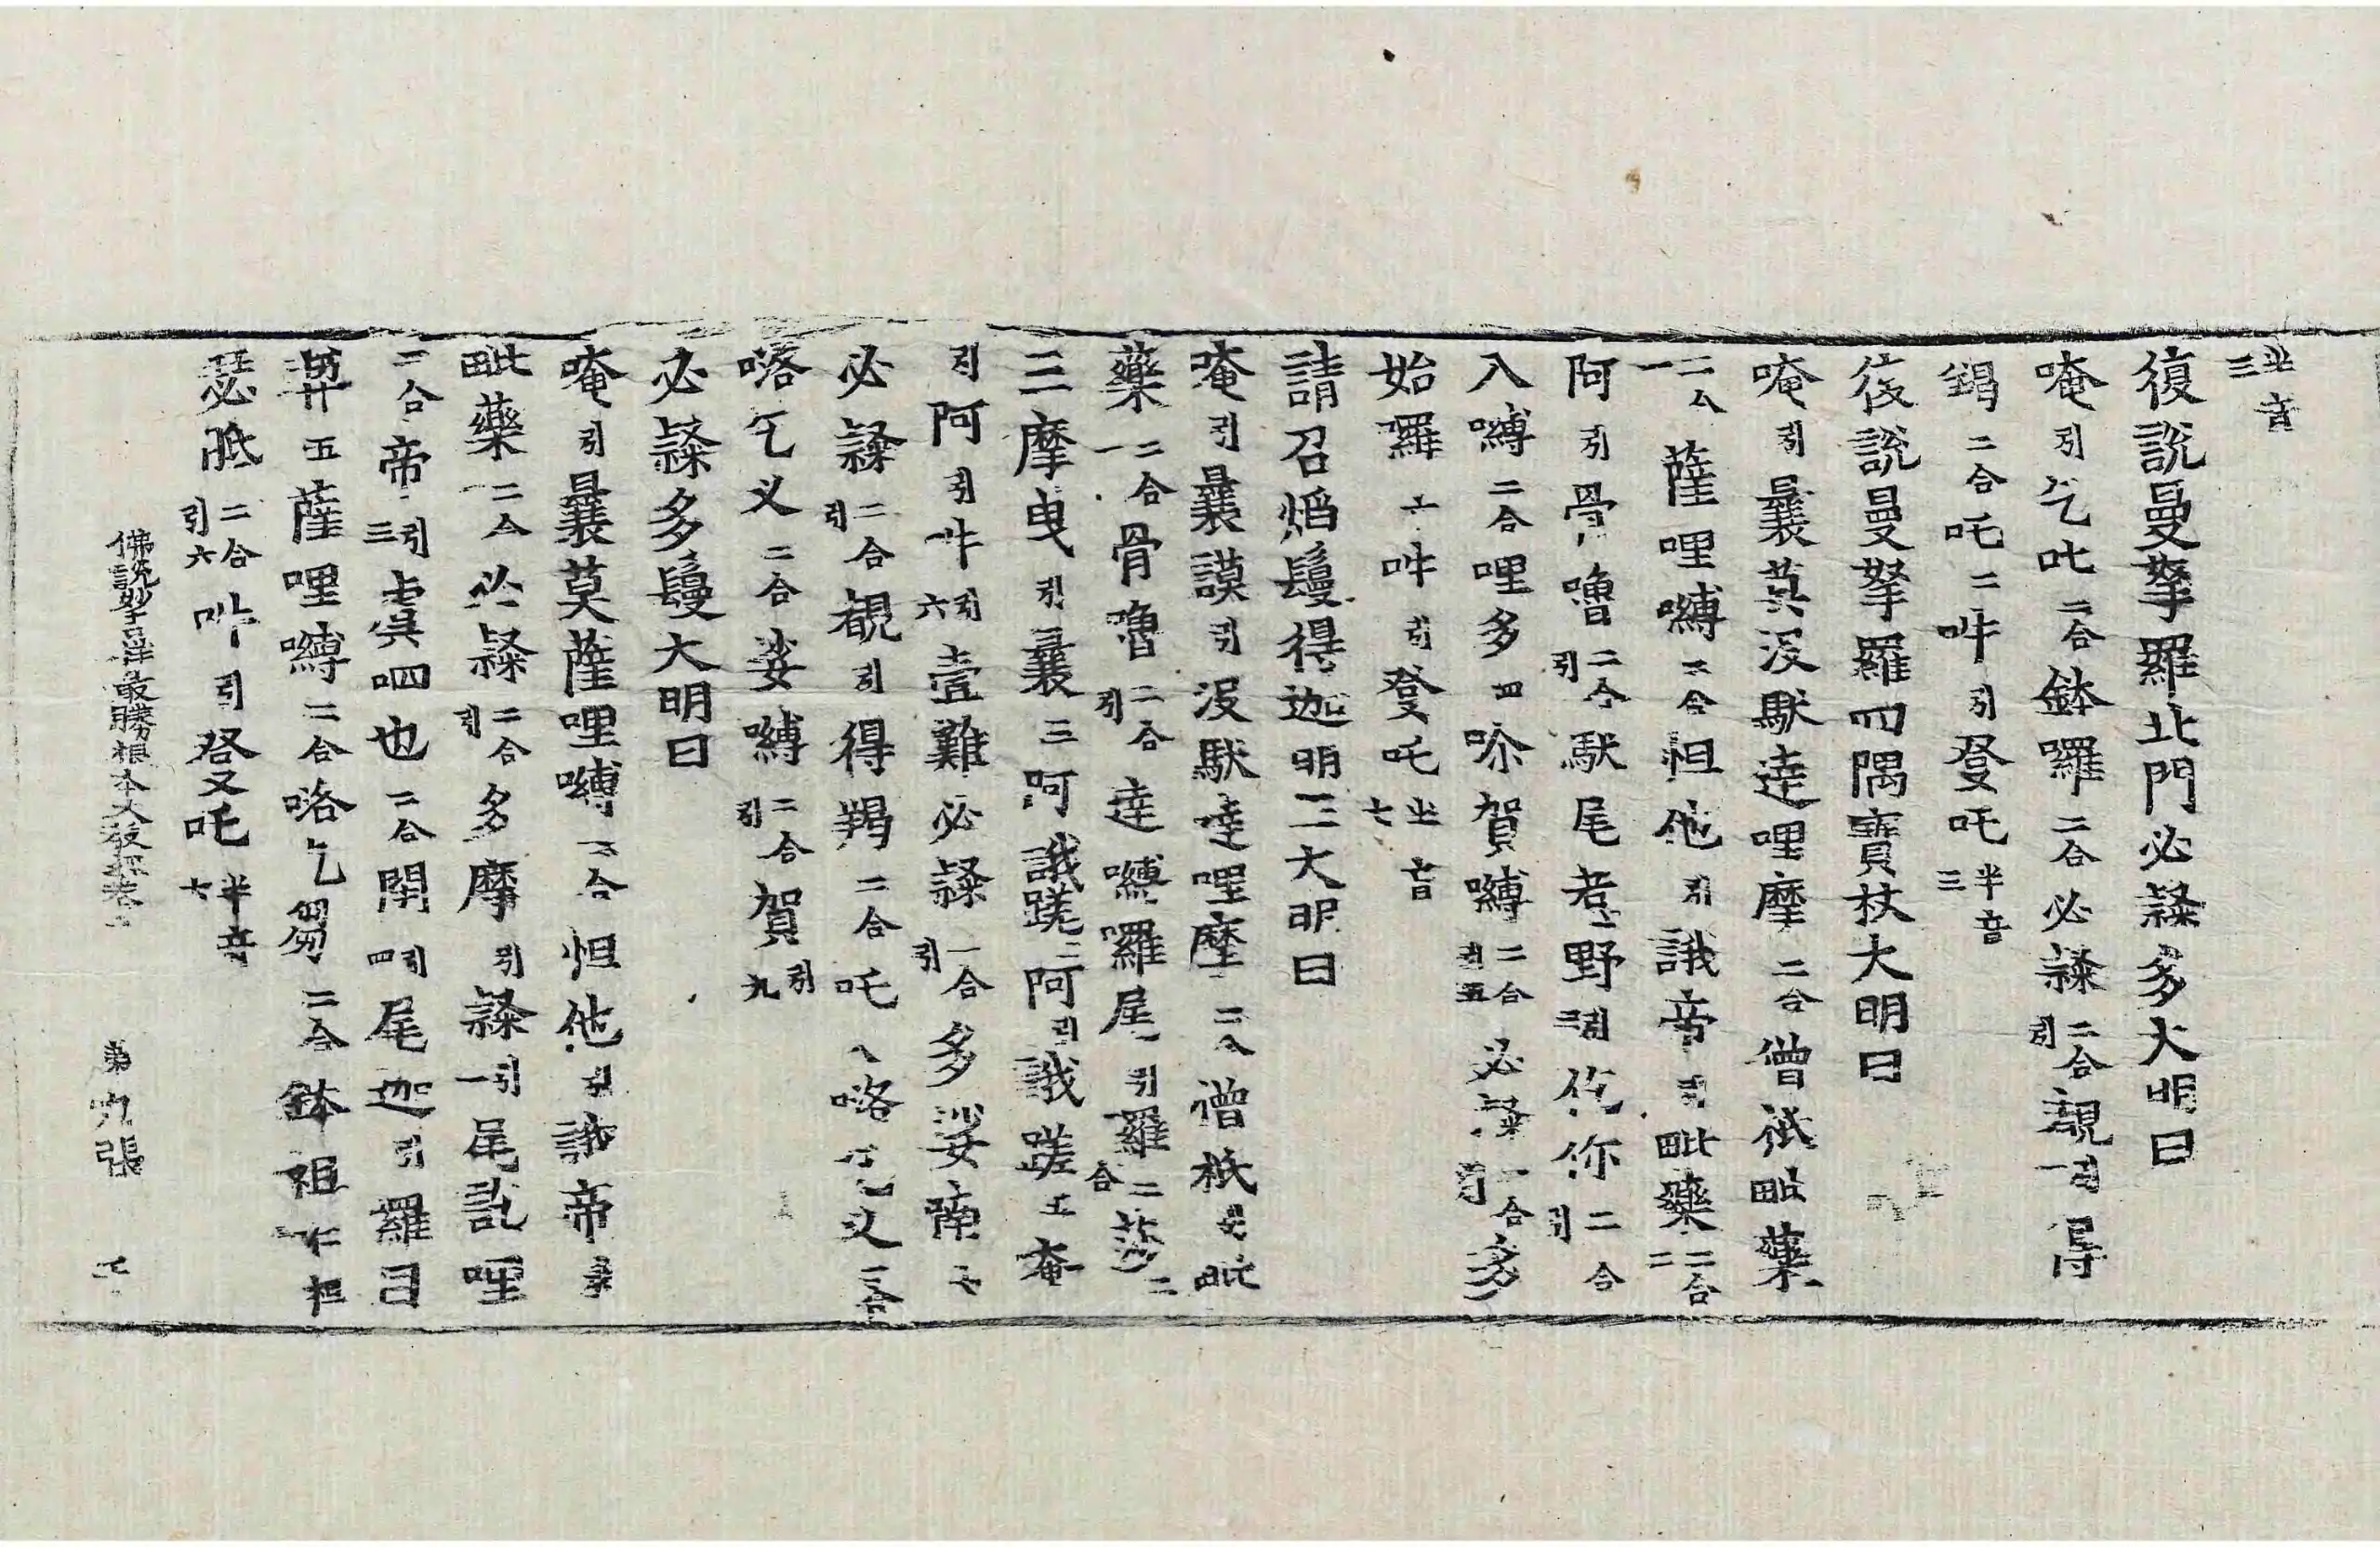 半音三
復說曼拏羅北門必隸多大明曰
唵引乞叱二合鉢囉二合必隸二合引覩引一得
鍻二合吒二吽引發吒半音三
復說曼拏羅四隅寶杖大明曰
唵引曩莫沒馱達哩摩二合僧祇毗藥
二合一薩哩嚩二合怛他引誐帝引毗藥二合二
阿引骨嚕二合引馱尾惹野引三佗你二合引
入嚩二合哩多四吩賀嚩二合引五必隸二合引多
始囉六吽引發吒半音七
請召焰鬘得迦明王大明曰
唵引曩謨引沒馱達哩摩二合僧祇毗
藥二合一骨嚕二合引達嚩囉尾引羅二莎二合
三摩曳引曩三阿誐蹉阿引誐蹉五奄
引阿引吽引六壹難必隸二合引多娑喃七
必隸二合引覩引得羯二合吒八喀乞叉二合
喀乞叉二合娑嚩二合引賀引九
必隸多鬘大明曰
唵引曩莫薩哩嚩二合怛他引誐帝引
毗藥二合必隸二合引多摩引隸引一尾訖哩
二合帝引三虞呬也二合閉引四尾迦引羅日
五薩哩嚩二合喀乞芻二合鉢祖
瑟胝二合引六吽引發吒半音七
佛說妙吉祥最勝根本大教經卷上 第九張